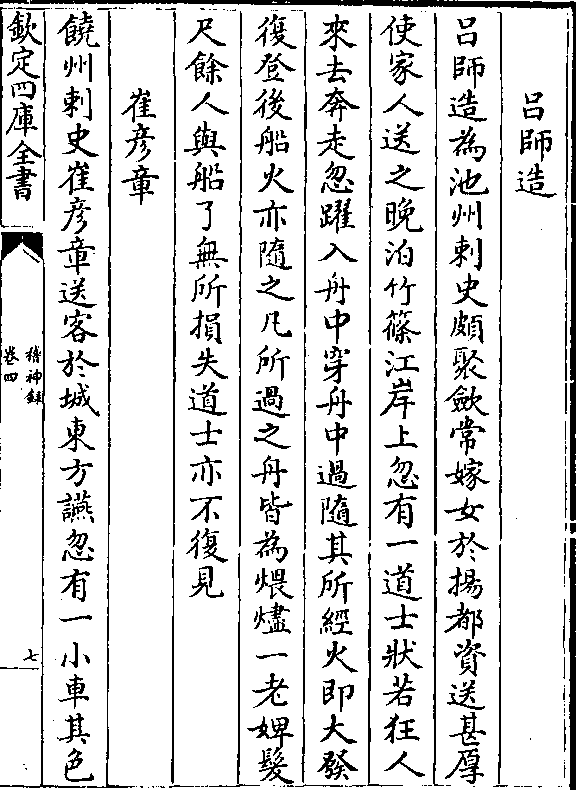 呂師造
呂師造為池州刺史頗聚斂常嫁女於揚都資送甚厚
使家人送之晚泊竹篠江岸上忽有一道士狀若狂人
來去奔走忽躍入舟中穿舟中過隨其所經火即大發
復登後船火亦隨之凡所過之舟皆為煨燼一老婢髮
尺餘人與船了無所損失道士亦不復見
崔彦章
饒州刺史崔彦章送客於城東方讌忽有一小車其色
欽定四庫全書
稽神錄
卷四
七